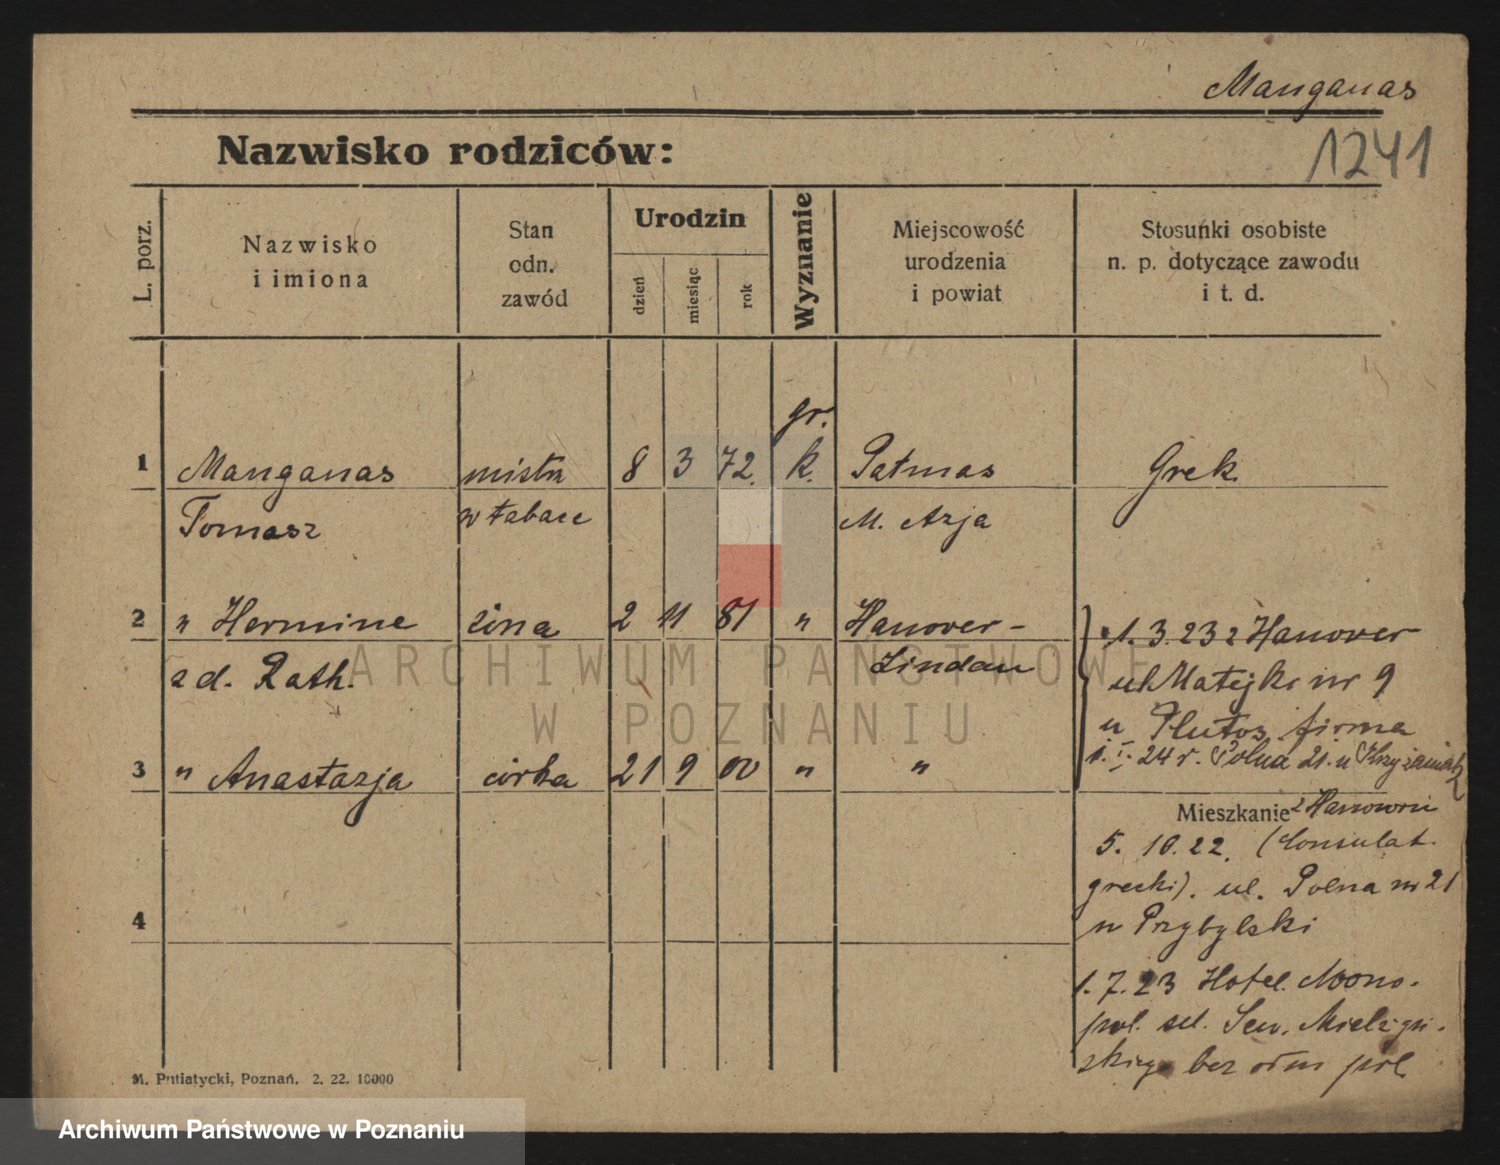 Manganas
1241
Nazwisko rodziców:
L. porz.
Nazwisko
i imiona
Stan
odn.
zawód
Urodzin
dzień
miesiąc
rok
Wyznanie
Miejscowość
urodzenia
i powiat
Stosunki osobiste
n. p. dotyczące zawodu
i t. d.
gr.
1 Manganas mistrz 8 3 72. k. Patmas Grek
Tomasz w tabace M. Azja
2 " Hermine żona 2 11 81 " Hanover-
zd. Rath. Lindau
1.3.23 z Hanower
ul. Matejki nr 9
u Plutos firma
1. I. 24 r. Polna 21. u
3 " Anastazja córka 21 9 00 " "
Mieszkanie z Hanowru
5. 10. 22. (Consulat
grecki). ul. Polna nr 21
u Przybylski
4
1.7.23 Hotel Mono-
pol. ul. Sew. Mielżyń-
skiego bez pol.
M. Putiatycki, Poznań. 2. 22. 10000
ARCHIWUM PAŃSTWOWE
W POZNANIU
Archiwum Państwowe w Poznaniu